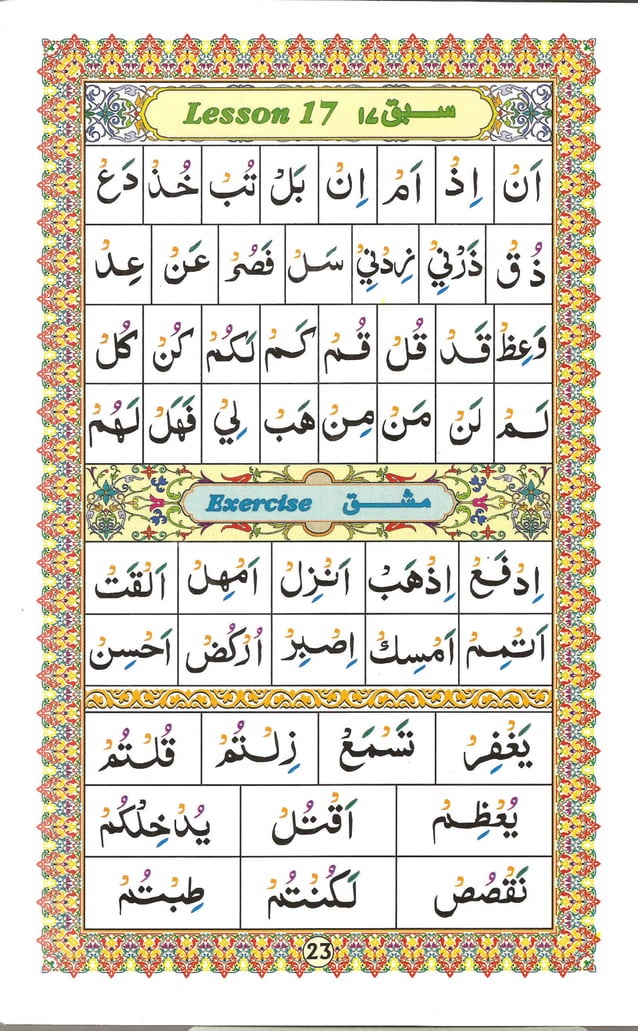 Lesson 17 سبق ۱۷
اَنْ اِذْ اَمْ اِنْ بَلْ تُبْ خُذْ دَعْ
ذُقْ ذَرْنِيْ زِدْنِيْ سَلْ فَصُرْ عَنْ عِدْ
وَعِظْ قَدْ قُلْ قُمْ كَمْ لَكُمْ كُنْ كُلْ
لَمْ لَنْ مَنْ مِنْ هَبْ لِيْ فَهَلْ لَهُمْ
Exercise مشق
اِدْفَعْ اِذْهَبْ اَنْزِلْ اَمْهِلْ اَلْقَتْ
اَتْمِمْ اَمْسِكْ اِصْبِرْ اُرْكُضْ اَحْسِنْ
يَغْفِرْ تَسْمَعْ زِلْتُمْ قُلْتُمْ
يُعْظِمْ اَقْتُلْ يُدْخِلْكُمْ
نَقْصُصْ لَكُنْتُمْ طِبْتُمْ
23